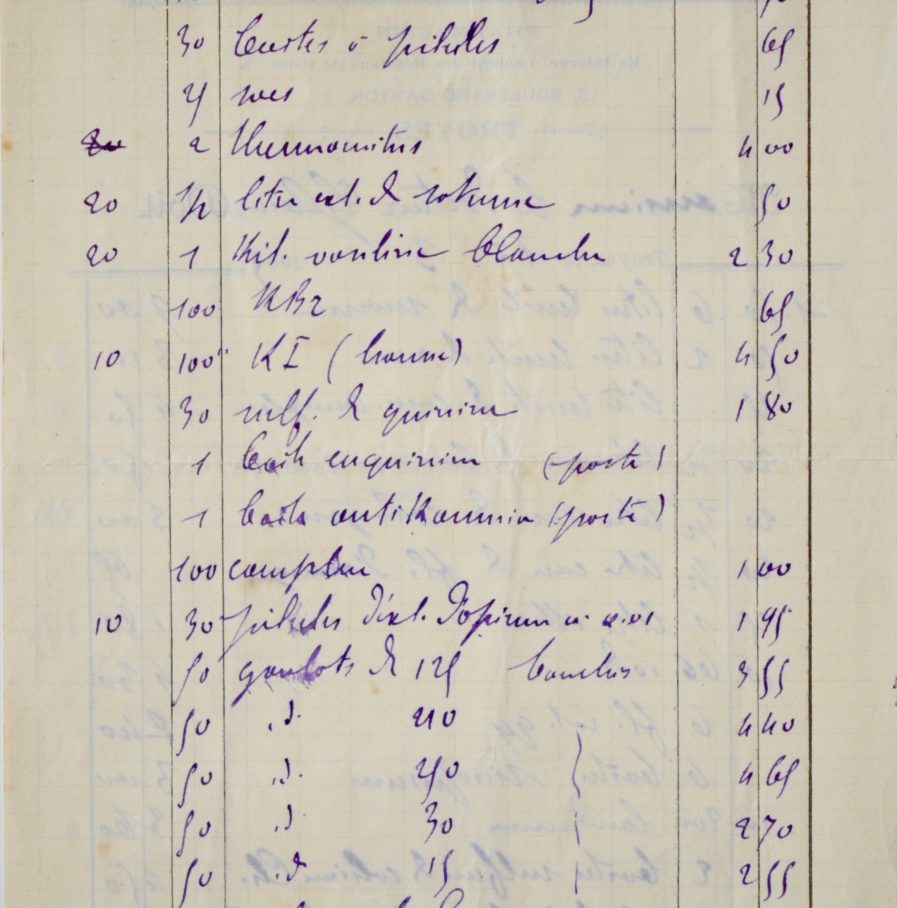 30 boites à pilules 65
25 15
2 thermomètres 4 00
20 1/2 litre ext. de 50
20 1 Kil. vaseline blanche 2 30
100 KBr 65
10 100 KI ( 4 50
30 sulf. de quinine 1 80
1 boîte euquinine (poste)
1 boîte antikamnia (poste)
100 camphre 1 00
10 30 pilules d'ext. d'opium à 0.01 1 95
50 goulots de 125 bouchés 3 55
50 id. 210 4 40
50 id. 250 4 65
50 id 30 2 70
50 id 15 2 55